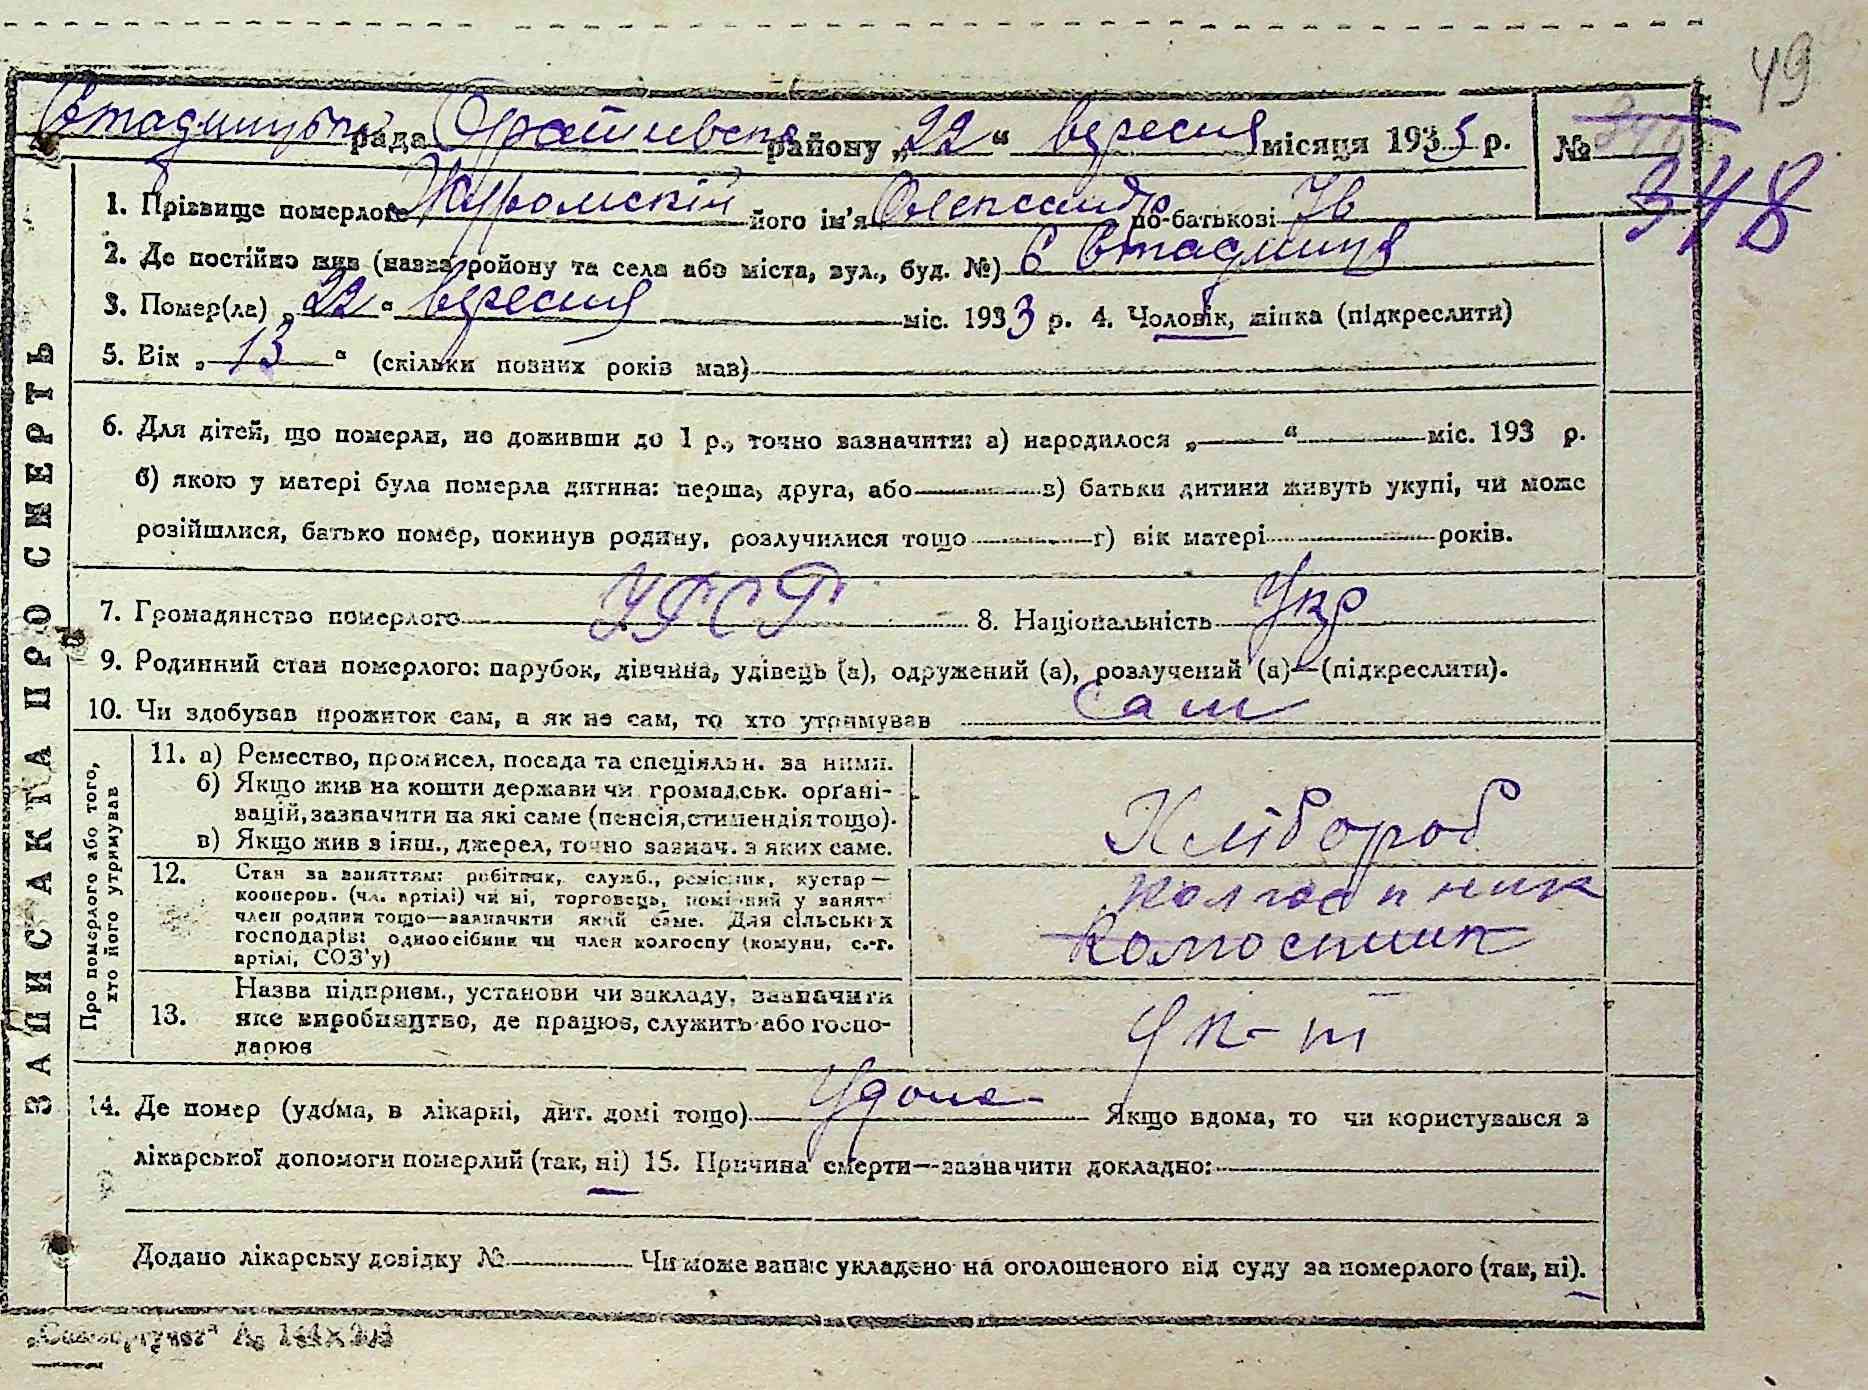 49
Стадницька рада Оратівськ району „22“ вересня місяця 1933 р. №
348
1. Прізвище померлого Журомскій його ім'я Олександр по-батькові Ів
2. Де постійно жив (назва ройону та села або міста, вул., буд. №) С Стадниця
3. Помер(ла) „22“ вересня міс. 1933 р. 4. Чоловік, жінка (підкреслити)
5. Вік „13“ (скільки повних років мав)
6. Для дітей, що померли, не доживши до 1 р., точно зазначити: а) народилося „ “ міс. 193 р.
б) якою у матері була померла дитина: перша, друга, або в) батьки дитини живуть укупі, чи може
розійшлися, батько помер, покинув родину, розлучилися тощо г) вік матері років.
7. Громадянство померлого УРСР 8. Національність Укр
9. Родинний стан померлого: парубок, дівчина, удівець (а), одружений (а), розлучений (а)—(підкреслити).
10. Чи здобував прожиток сам, а як не сам, то хто утримував Сам
ЗАПИСАКТА ПРО СМЕРТЬ
Про померлого або того, хто його утримував
11. а) Ремество, промисел, посада та спеціяльн. за ними.
б) Якщо жив на кошти держави чи громадськ. орґані-
зацій, зазначити на які саме (пенсія, стипендія тощо).
в) Якщо жив з інш., джерел, точно зазнач. з яких саме.
Хлібороб
12. Стан за заняттям: робітник, служб., ремісник, кустар—
кооперов. (чл. артілі) чи ні, торговець, помічний у занятт
член родини тощо—зазначити який саме. Для сільських
господарів: одноосібник чи член колгоспу (комуни, с.-г.
артілі, СОЗ'у)
колгоспник
Колгоспник
13. Назва підприєм., установи чи закладу, зазначити
яке виробництво, де працює, служить або госпо-
дарює
14. Де помер (удома, в лікарні, дит. домі тощо) Удома Якщо вдома, то чи користувався з
лікарської допомоги померлий (так, ні) 15. Причина смерти—зазначити докладно:
Додано лікарську довідку № Чи може запис укладено на оголошеного від суду за померлого (так, ні).